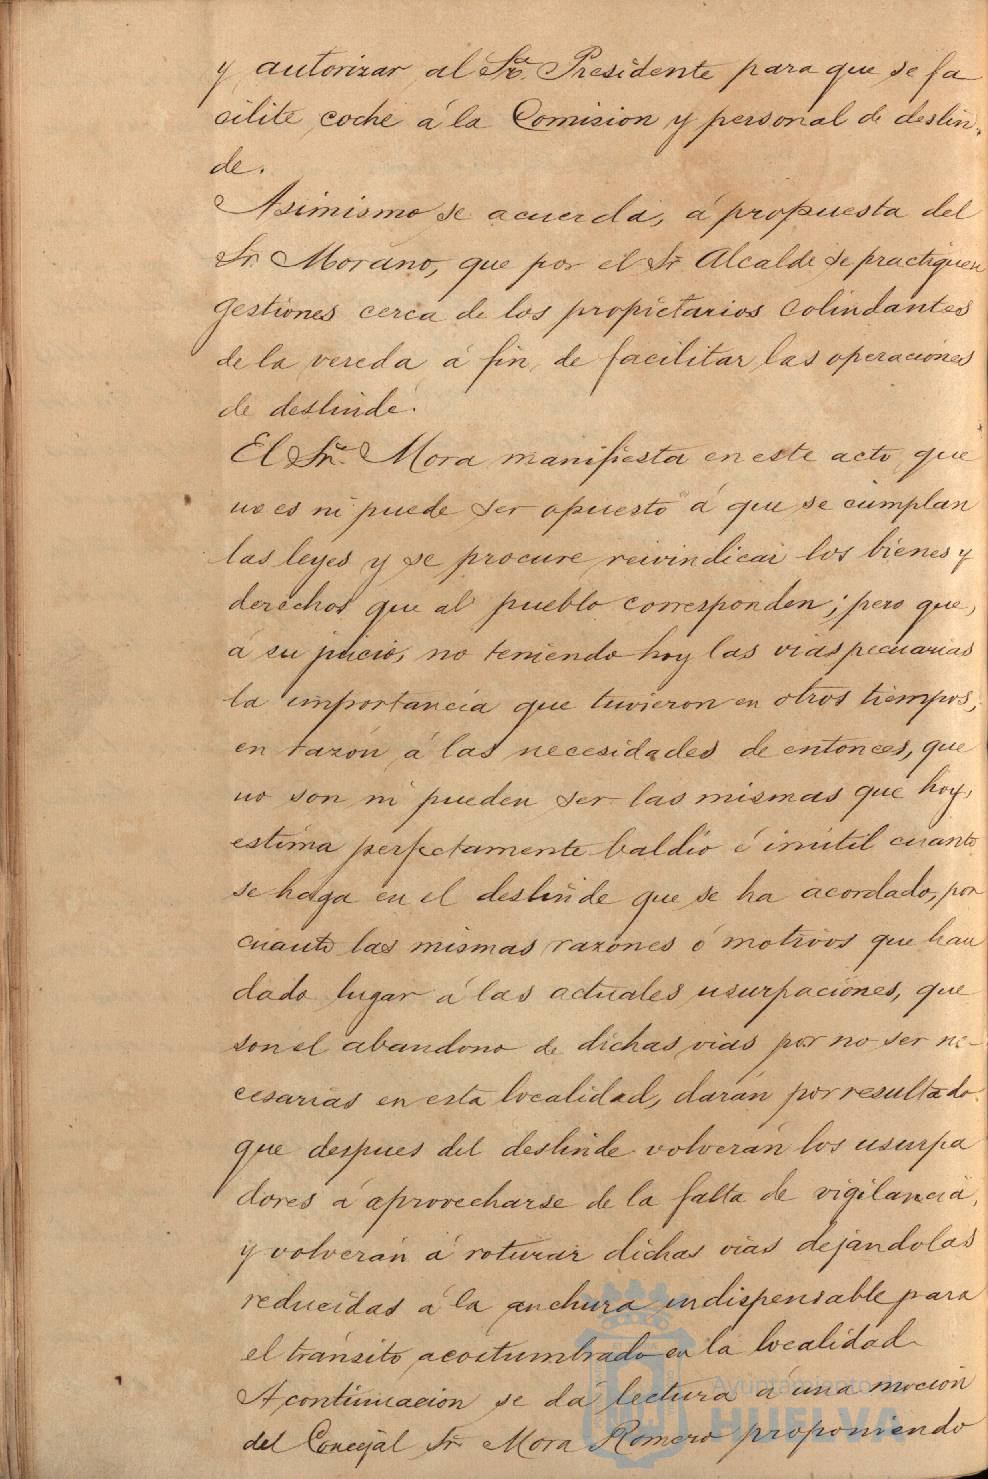 y autorizar al Sr. Presidente para que se fa
cilite coche á la Comision y personal de deslin-
de.
Asimismo se acuerda, á propuesta del
Sr. Morano, que por el Sr. Alcalde se practiquen
gestiones cerca de los propietarios colindantes
de la vereda á fin de facilitar las operaciones
de deslinde.
El Sr. Mora manifiesta en este acto que
no es ni puede ser opuesto á que se cumplan
las leyes y se procure reivindicar los bienes y
derechos que al pueblo corresponden; pero que,
á su juicio, no teniendo hoy las vias pecuarias
la importancia que tuvieron en otros tiempos,
en razón á las necesidades de entonces, que
no son ni pueden ser las mismas que hoy,
estima perfectamente baldío é inútil cuanto
se haga en el deslinde que se ha acordado, por
cuanto las mismas razones ó motivos que han
dado lugar á las actuales usurpaciones, que
son el abandono de dichas vias por no ser ne-
cesarias en esta localidad, darán por resultado
que despues del deslinde volverán los usurpa
dores á aprovecharse de la falta de vigilancia,
y volverán á roturar dichas vias dejándolas
reducidas á la anchura indispensable para
el tránsito acostumbrado en la localidad
A continuacion se dá lectura á una mocion
del Concejal Sr. Mora Romero proponiendo
Ayuntamiento de
HUELVA